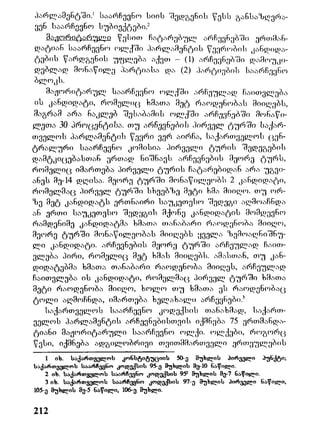 პარლამენტში.¹ საარჩევნო სიის შედგენის წესს განსაზღვრა-
ვენ საარჩევნო სუბიექტები.²
მაჟორიტარული წესით ჩატარებულ არჩევნებში ერთმან-
დატიან საარჩევნო ოლქში პარლამენტის წევრობის კანდიდა-
ტების წარდგენის უფლება აქვთ – (1) არჩევნებში დამოუკი-
დებლად მონაწილე პარტიასა და (2) პარტიების საარჩევნო
ბლოკს.
მაჟორიტარულ საარჩევნო ოლქში არჩეულად ჩაითვლება
ის კანდიდატი, რომელიც ხმათა მეტ რაოდენობას მიიღებს,
მაგრამ არა ნაკლებ შესაბამის ოლქში არჩევნებში მონაწი-
ლეთა 30 პროცენტისა. თუ არჩევნების პირველ ტურში საქარ-
თველოს პარლამენტის წევრი ვერ აირჩა, საქართველოს ცენ-
ტრალური საარჩევნო კომისია პირველი ტურის შედეგების
დამტკიცებასთან ერთად ნიშნავს არჩევნების მეორე ტურს,
რომელიც იმართება პირველი ტურის ჩატარებიდან არა უგვი-
ანეს მე-14 დღისა. მეორე ტურში მონაწილეობს 2 კანდიდატი,
რომელმაც პირველ ტურში სხვებზე მეტი ხმა მიიღო. თუ ორ-
ზე მეტ კანდიდატს ერთნაირი საუკეთესო შედეგი აღმოაჩნდა
ან ერთი საუკეთესო შედეგის მქონე კანდიდატის მომდევნო
რამდენიმე კანდიდატმა ხმათა თანაბარი რაოდენობა მიიღო,
მეორე ტურში მონაწილეობას მიიღებს ყველა ზემოაღნიშნუ-
ლი კანდიდატი. არჩევნების მეორე ტურში არჩეულად ჩაით-
ვლება პირი, რომელიც მეტ ხმას მიიღებს. ამასთან, თუ კან-
დიდატებმა ხმათა თანაბარი რაოდენობა მიიღეს, არჩეულად
ჩაითვლება ის კანდიდატი, რომელმაც პირველ ტურში ხმათა
მეტი რაოდენობა მიიღო, ხოლო თუ ხმათა ეს რაოდენობაც
ტოლი აღმოჩნდა, იმართება ხელახალი არჩევნები.³
საქართველოს საარჩევნო კოდექსის თანახმად, საქართ-
ველოს პარლამენტის არჩევნებისთვის იქმნება 75 ერთმანდა-
ტიანი მაჟორიტარული საარჩევნო ოლქი. ოლქები, როგორც
წესი, იქმნება ადგილობრივი თვითმმართველი ერთეულების
1 იხ. საქართველოს კონსტიტუციის 50-ე მუხლის პირველი პუნქტი;
საქართველოს საარჩევნო კოდექსის 95-ე მუხლის მე-10 ნაწილი.
2 იხ. საქართველოს საარჩევნო კოდექსის 95² მუხლის მე-7 ნაწილი.
3 იხ. საქართველოს საარჩევნო კოდექსის 97-ე მუხლის პირველი ნაწილი,
105-ე მუხლის მე-5 ნაწილი, 106-ე მუხლი.
212